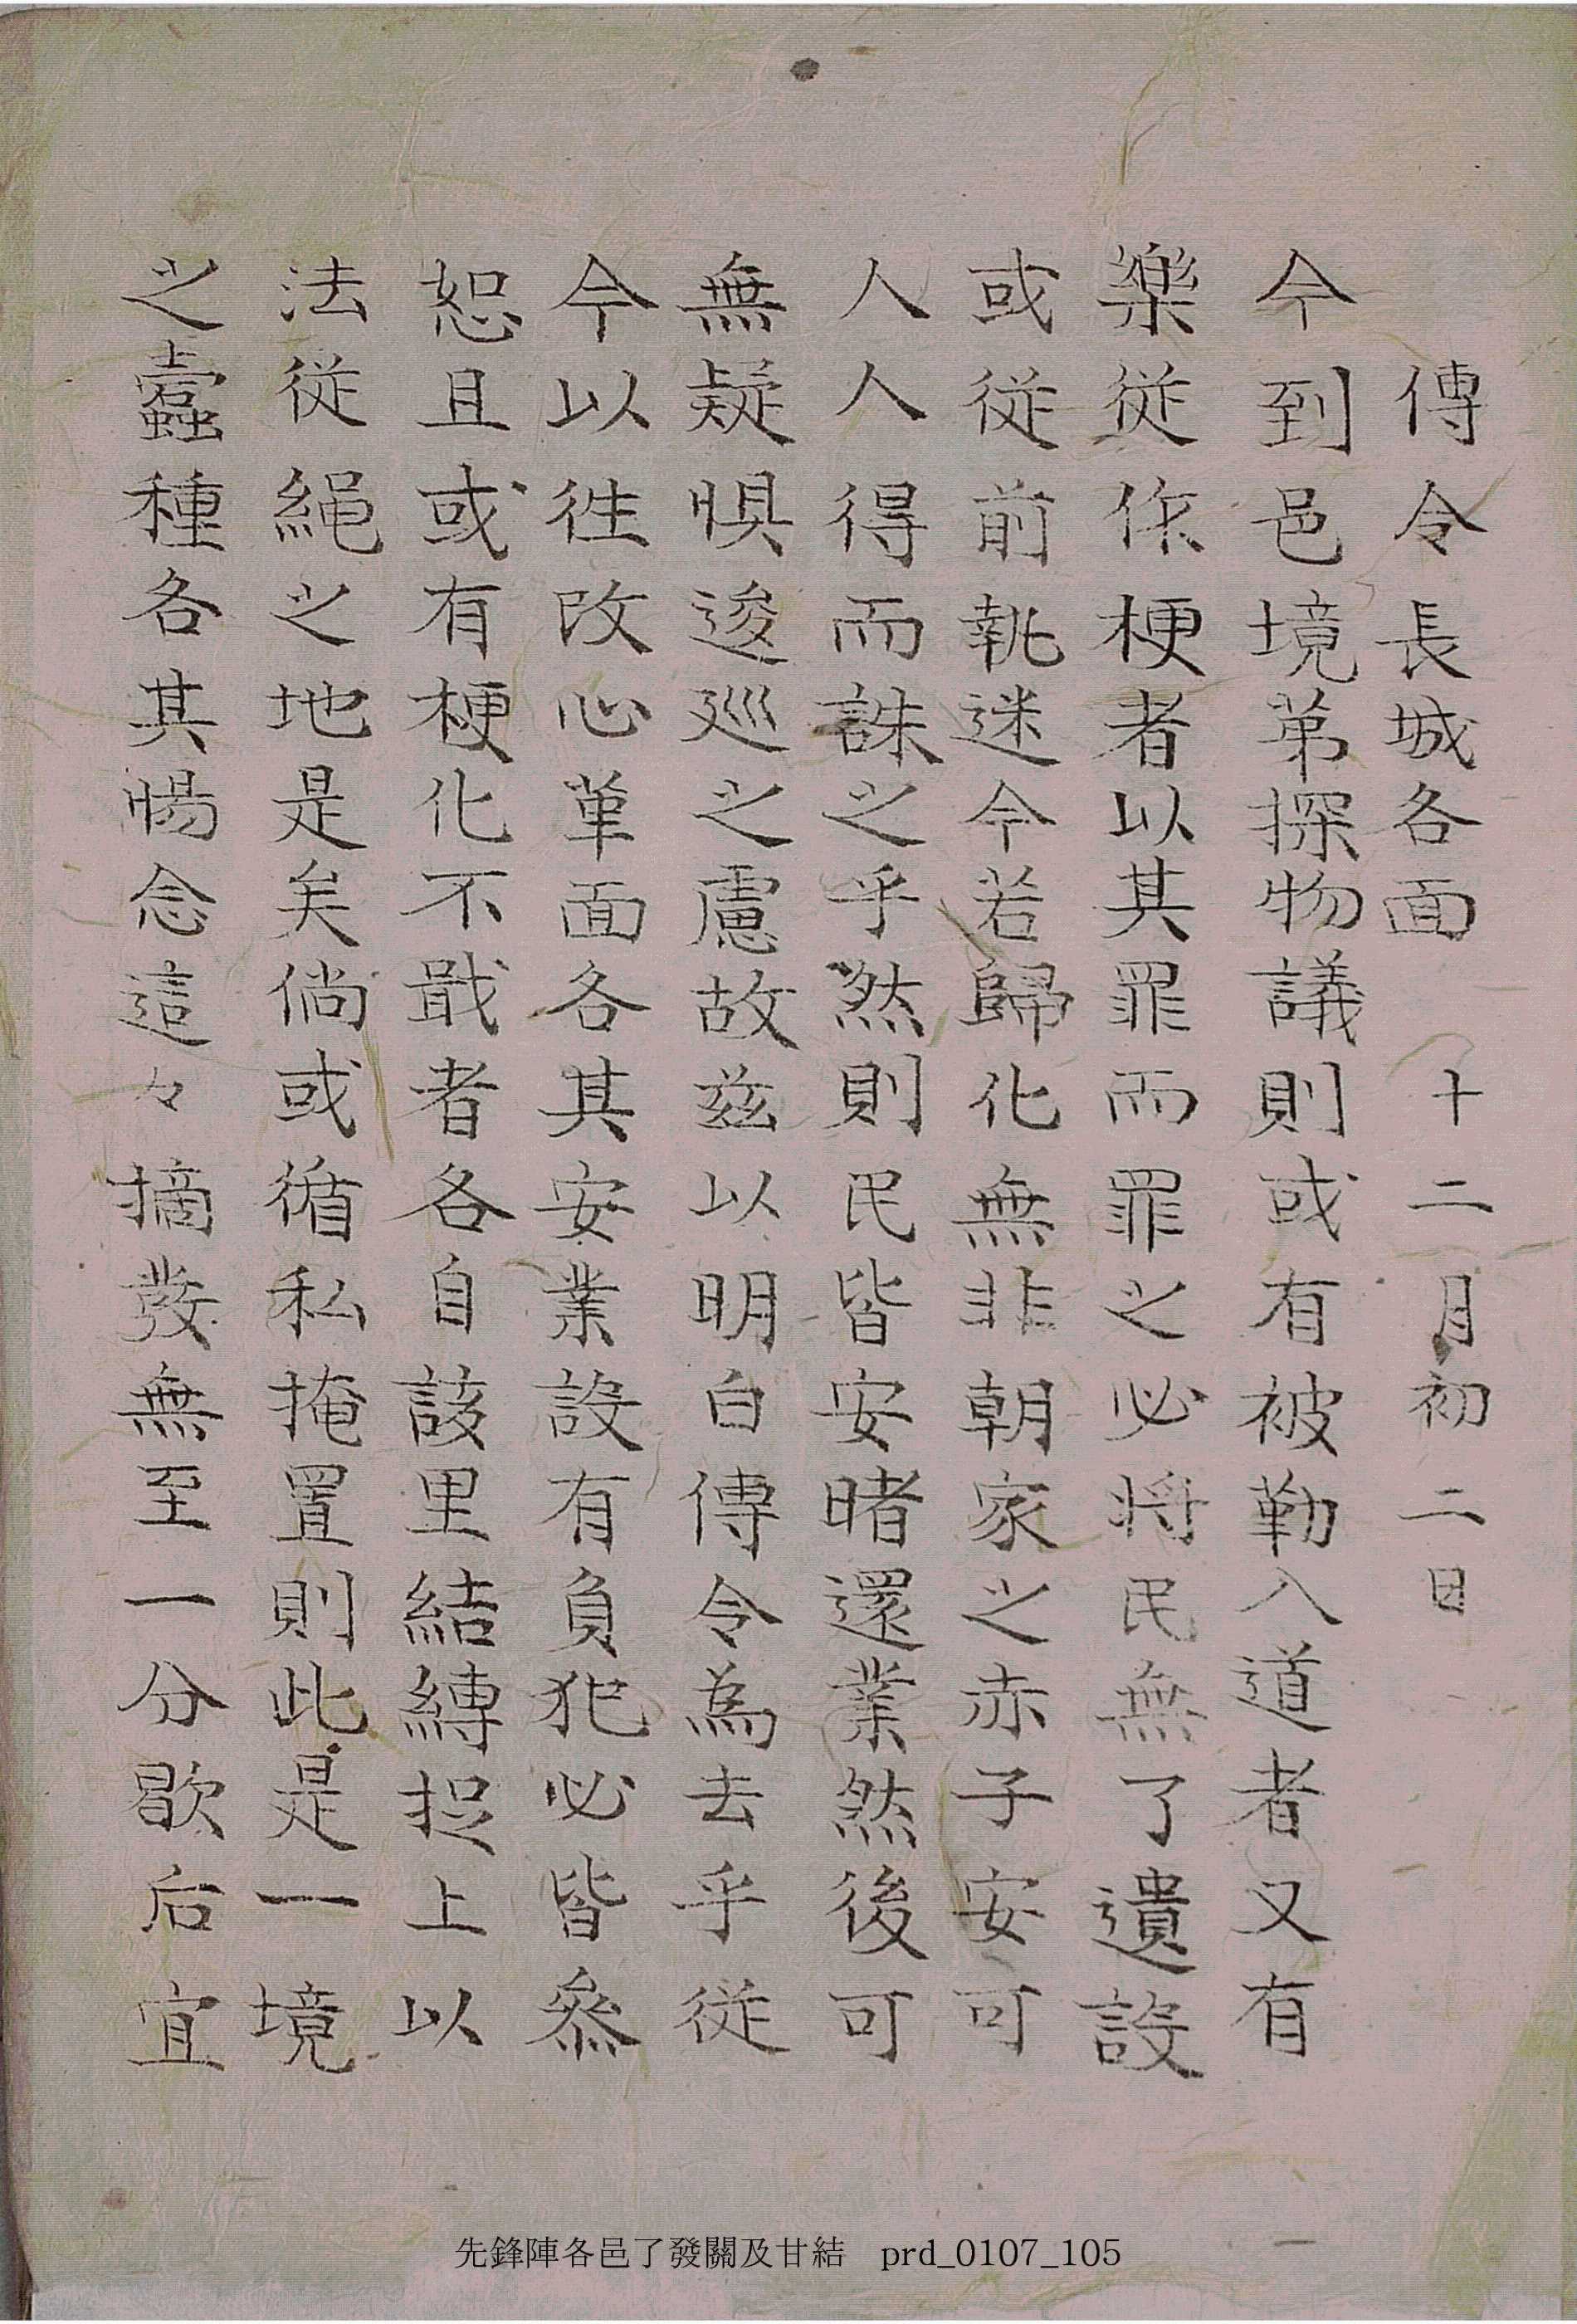 傳令長城各面 十二月初二日
今到邑境第探物議則或有被勒入道者又有
樂從作梗者以其罪而罪之必將民無了遺設
或從前執迷今若歸化無非朝家之赤子安可
人人得而誅之乎然則民皆安睹還業然後可
無疑惧逡巡之慮故玆以明白傳令為去乎從
今以往改心革面各其安業設有負犯必皆叅
恕且或有梗化不戢者各自該里結縛捉上以
法從繩之地是矣倘或循私掩置則此是一境
之蠧種各其惕念這々摘發無至一分歇后宜
先鋒陣各邑了發關及甘結 prd_0107_105